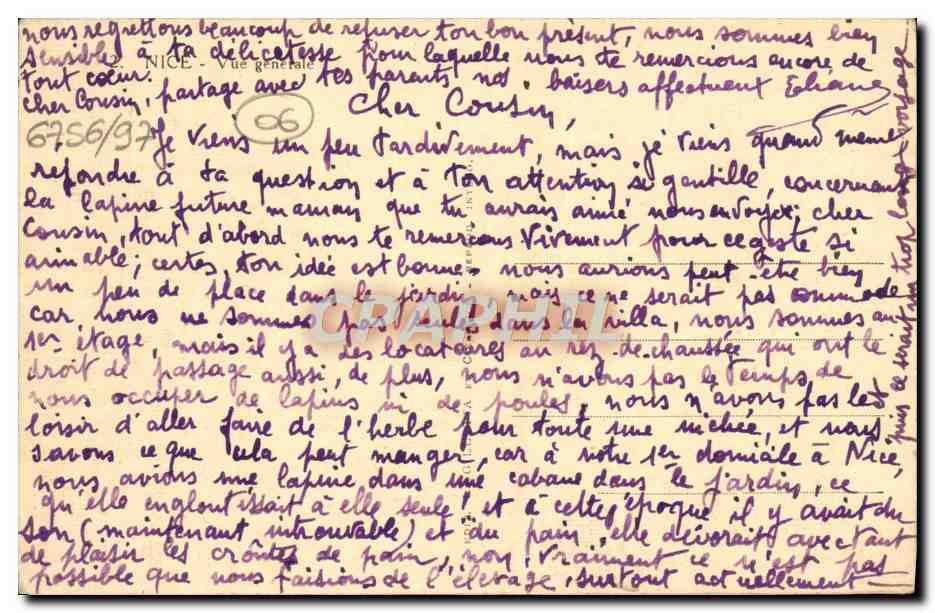 nous regrettons beaucoup de refuser ton bon présent, nous sommes bien
sensibles à ta délicatesse pour laquelle nous te remercions encore de
2. NICE - Vue générale
tout cœur.
cher Cousin, partage avec tes parents nos baisers affectueux Eliane
6756/97
06
Cher Cousin,
Je viens un peu tardivement, mais je viens quand même
répondre à ta question et à ton attention si gentille, concernant
la lapine future maman que tu aurais aimé nous envoyer; cher
Cousin, tout d'abord nous te remercions vivement pour ce geste si
aimable; certes, ton idée est bonne, nous aurions peut-être bien
un peu de place dans le jardin, mais ce ne serait pas commode
CARTOPHIL
car, nous ne sommes pas seuls dans la villa, nous sommes au
1er étage, mais il y a des locataires au rez-de-chaussée qui ont le
droit de passage aussi, de plus, nous n'avons pas le temps de
nous occuper de lapins ni de poules, nous n'avons pas le
loisir d'aller faire de l'herbe pour toute une nichée, et nous
savons ce que cela peut manger, car à notre 1er domicile à Nice,
nous avions une lapine dans une cabane dans le jardin, ce
qu'elle engloutissait à elle seule! et à cette époque il y avait du
son (maintenant introuvable) et du pain, elle dévorait avec tant
de plaisir les croûtes de pain, non, vraiment ce n'est pas
possible que nous faisions de l'élevage, surtout actuellement —
puis ce serait un trop long voyage